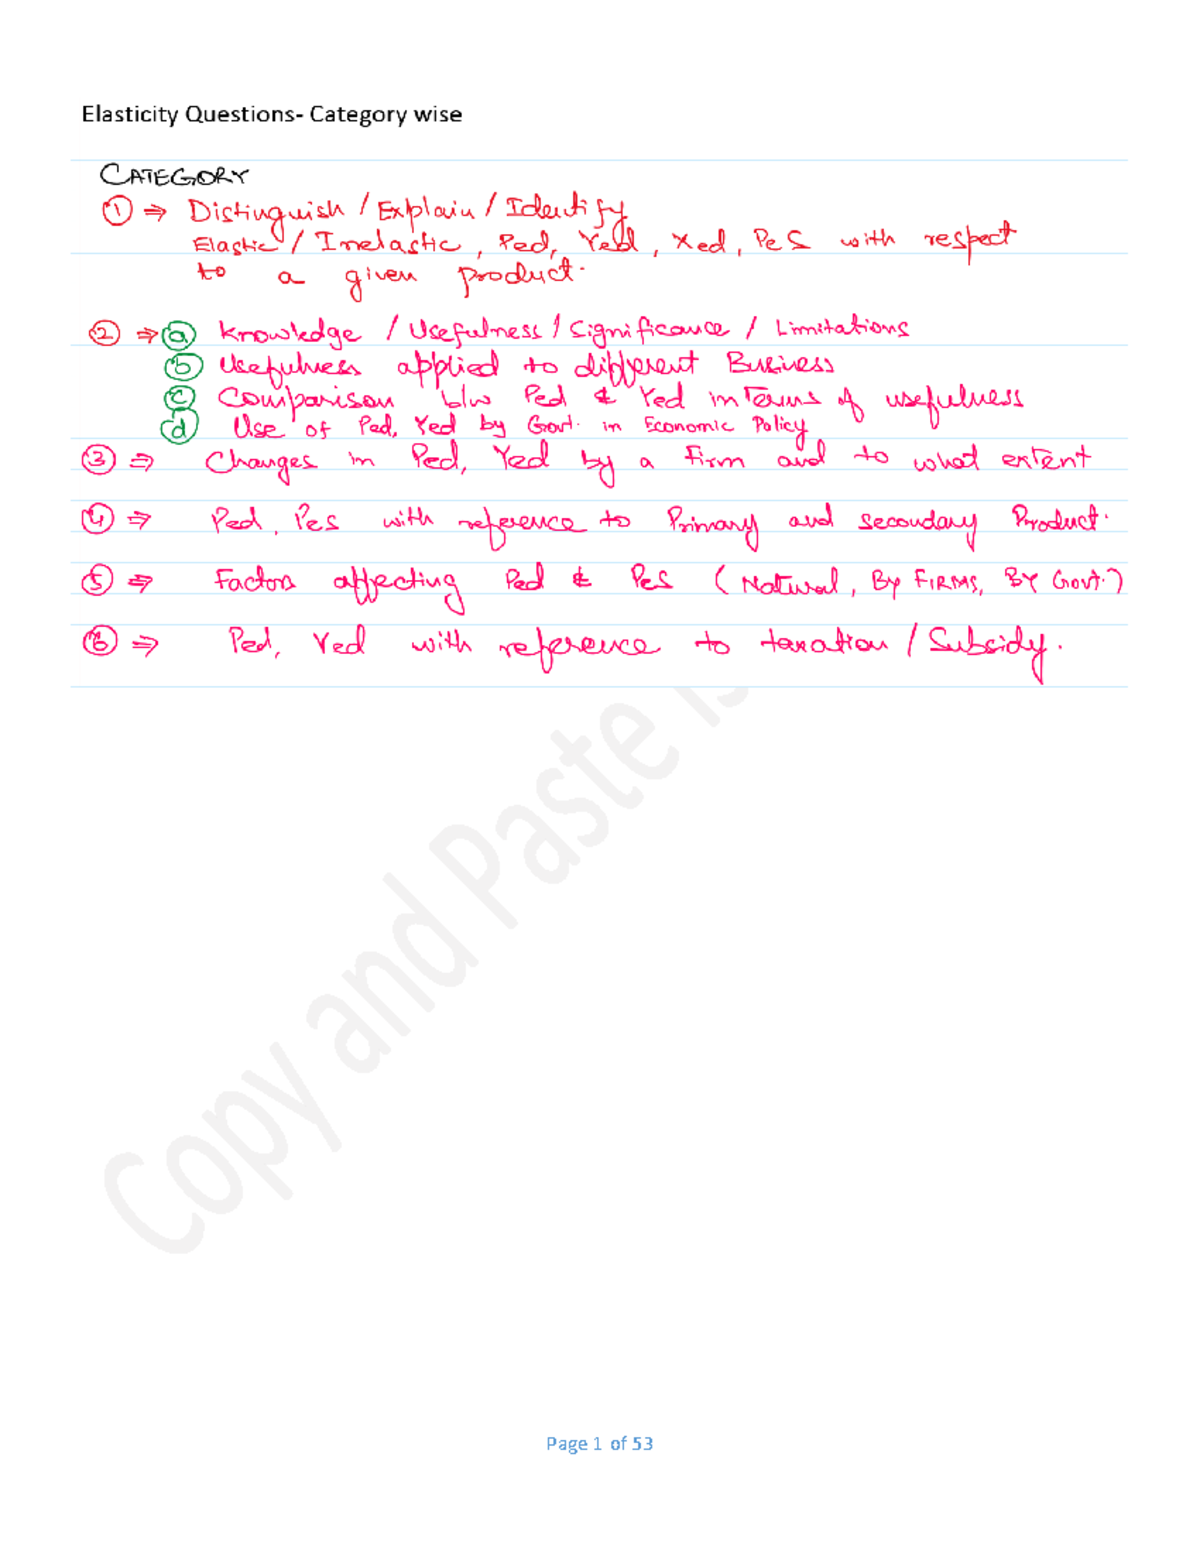 Elasticity Questions- Category wise
CATEGORY
① ⇒ Distinguish / Explain / Identify
Elastic / Inelastic, Ped, Yed, Xed, Pes with respect
to a given product.
② ⇒ ⓐ Knowledge / Usefulness / Significance / Limitations
ⓑ Usefulness applied to different Business
ⓒ Comparison b/w Ped & Yed in Terms of usefulness
ⓓ Use of Ped, Yed by Govt. in Economic Policy
③ ⇒ Changes in Ped, Yed by a Firm and to what extent
④ ⇒ Ped, Pes with reference to Primary and secondary Product.
⑤ ⇒ Factors affecting Ped & Pes (Natural, By FIRMS, BY Govt.)
⑥ ⇒ Ped, Yed with reference to taxation / Subsidy.
Copy and Paste is
Page 1 of 53